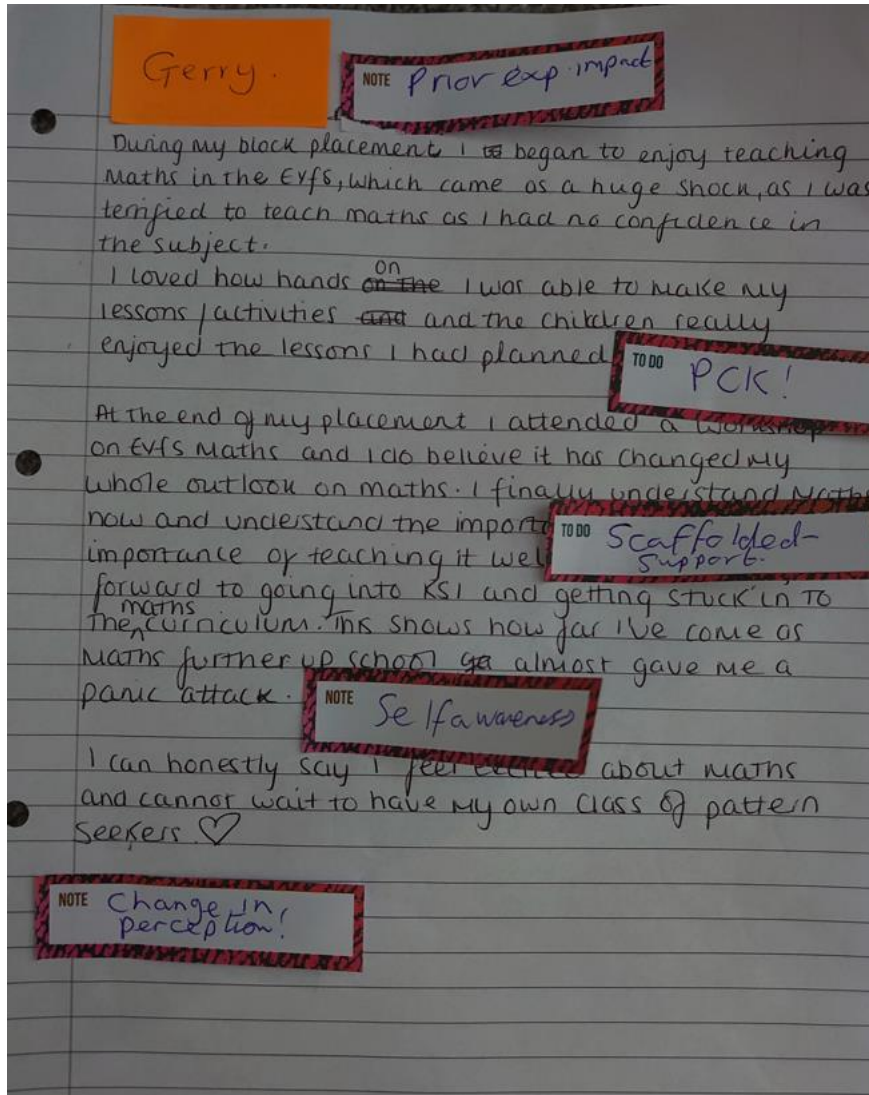 Gerry.
NOTE Prior exp. impact
During my block placement I began to enjoy teaching
Maths in the EYfS, which came as a huge shock, as I was
terrified to teach maths as I had no confidence in
the subject.
I loved how hands on I was able to make my
lessons / activities and and the children really
enjoyed the lessons I had planned
TO DO PCK!
At the end of my placement I attended a workshop
on EYfS Maths and I do believe it has changed my
whole outlook on maths. I finally understand Maths
now and understand the
TO DO Scaffolded-
support.
importance of teaching it
forward to going into KS1 and getting 'stuck in' to
the maths curriculum. This shows how far I've come as
Maths further up school almost gave me a
panic attack.
NOTE Self awareness
I can honestly say I feel about maths
and cannot wait to have my own class of pattern
seekers ♡
NOTE Change in
perception!